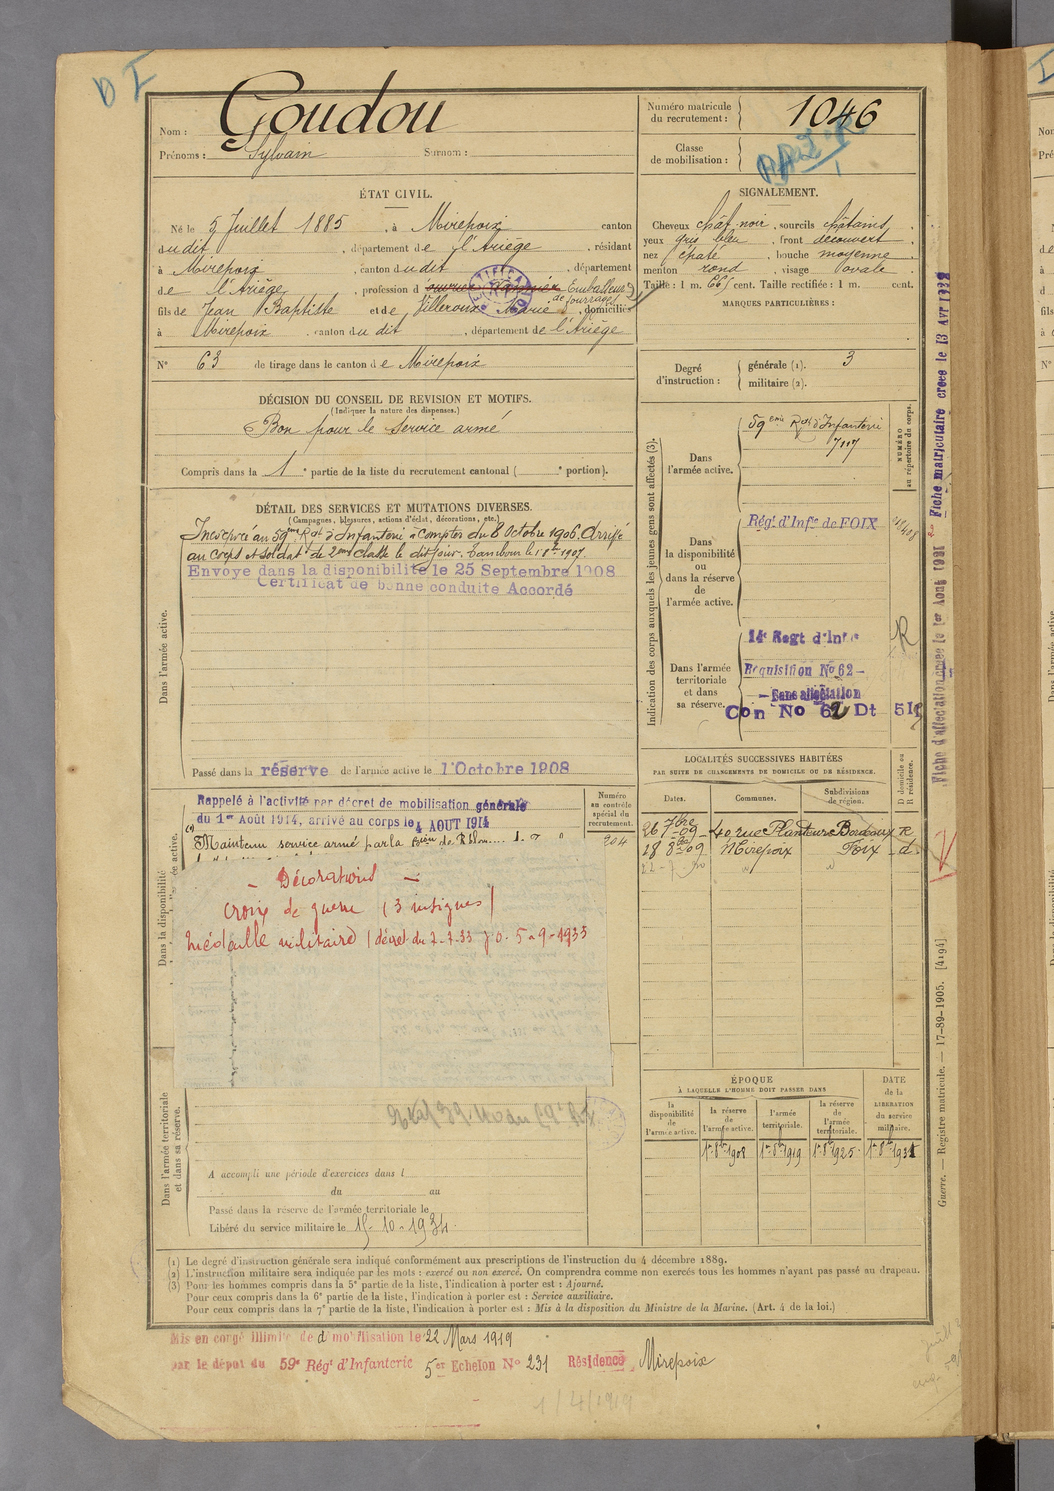 D I
Nom : Goudou
Prénoms : Sylvain Surnom :
Numéro matricule
du recrutement : 1046
Classe
de mobilisation :
ÉTAT CIVIL.
Né le 5 Juillet 1885, à Mirepoix canton
du dit, département de l'Ariège, résidant
à Mirepoix, canton du dit, département
de l'Ariège, profession d'ouvrier Emballeur
de fourrages
fils de Jean Baptiste et de Villeroux Marie, domiciliés
à Mirepoix, canton du dit, département de l'Ariège
N° 63 de tirage dans le canton de Mirepoix
SIGNALEMENT.
Cheveux chât noir, sourcils châtains,
yeux gris bleu, front découvert,
nez épaté, bouche moyenne
menton rond, visage ovale
Taille : 1 m. 66 cent. Taille rectifiée : 1 m. cent.
MARQUES PARTICULIÈRES :
Degré
d'instruction :
générale (1). 3
militaire (2).
DÉCISION DU CONSEIL DE REVISION ET MOTIFS.
(Indiquer la nature des dispenses.)
Bon pour le service armé
Compris dans la 1e partie de la liste du recrutement cantonal ( e portion).
DÉTAIL DES SERVICES ET MUTATIONS DIVERSES.
(Campagnes, blessures, actions d'éclat, décorations, etc.)
Incorporé au 59eme Rgt d'Infanterie à compter du 8 Octobre 1906. Arrivé
au corps et soldat de 2eme classe le dit jour. Tambour le 1907.
Envoyé dans la disponibilité le 25 Septembre 1908
Certificat de bonne conduite Accordé
Dans l'armée active.
Passé dans la réserve de l'armée active le 1 Octobre 1908
Indication des corps auxquels les jeunes gens sont affectés (3).
NUMÉRO
au répertoire du corps.
Dans
l'armée active.
59eme Rgt d'Infanterie
7117
Dans
la disponibilité
ou
dans la réserve
de
l'armée active.
Régt d'Infie de FOIX
Dans l'armée
territoriale
et dans
sa réserve.
14e Regt d'Infie
R
Requisition No 62 -
- Sans affectation
Con No 62 Dt 51
Fiche matriculaire créée le 13 Avr 1932
Fiche d'affectation créée le 1er Août 1931
LOCALITÉS SUCCESSIVES HABITÉES
PAR SUITE DE CHANGEMENTS DE DOMICILE OU DE RÉSIDENCE.
D domicile ou
R résidence.
Dates. Communes. Subdivisions
de région.
26 7bre 09 40 rue Planteurs Bordeaux R
28 8bre 09 Mirepoix Foix d.
Numéro
au contrôle
spécial du
recrutement.
204
Dans la disponibilité
Rappelé à l'activité par décret de mobilisation générale
du 1er Août 1914, arrivé au corps le 4 AOUT 1914
Maintenu service armé par la
- Décorations -
Croix de guerre (3 insignes)
Médaille militaire (décret du 2-7-33 J.O. 5-9-1933
ÉPOQUE
À LAQUELLE L'HOMME DOIT PASSER DANS
DATE
de la
LIBÉRATION
du service
militaire.
la
disponibilité
de
l'armée active.
la réserve
de
l'armée active.
l'armée
territoriale.
la réserve
de
l'armée
territoriale.
1er 8bre 1908 1er 8bre 1919 1er 8bre 1925 1er 8bre 1931
Dans l'armée territoriale
et dans sa réserve.
A accompli une période d'exercices dans l
du au
Passé dans la réserve de l'armée territoriale le
Libéré du service militaire le 15-10-1934
Guerre. — Registre matricule. — 17-89-1905. [4194]
(1) Le degré d'instruction générale sera indiqué conformément aux prescriptions de l'instruction du 4 décembre 1889.
(2) L'instruction militaire sera indiquée par les mots : exercé ou non exercé. On comprendra comme non exercés tous les hommes n'ayant pas passé au drapeau.
(3) Pour les hommes compris dans la 5e partie de la liste, l'indication à porter est : Ajourné.
Pour ceux compris dans la 6e partie de la liste, l'indication à porter est : Service auxiliaire.
Pour ceux compris dans la 7e partie de la liste, l'indication à porter est : Mis à la disposition du Ministre de la Marine. (Art. 4 de la loi.)
Mis en congé illimité de démobilisation le 22 Mars 1919
par le dépôt du 59e Régt d'Infanterie 5er Echelon No 231 Résidence Mirepoix
1/4/1919